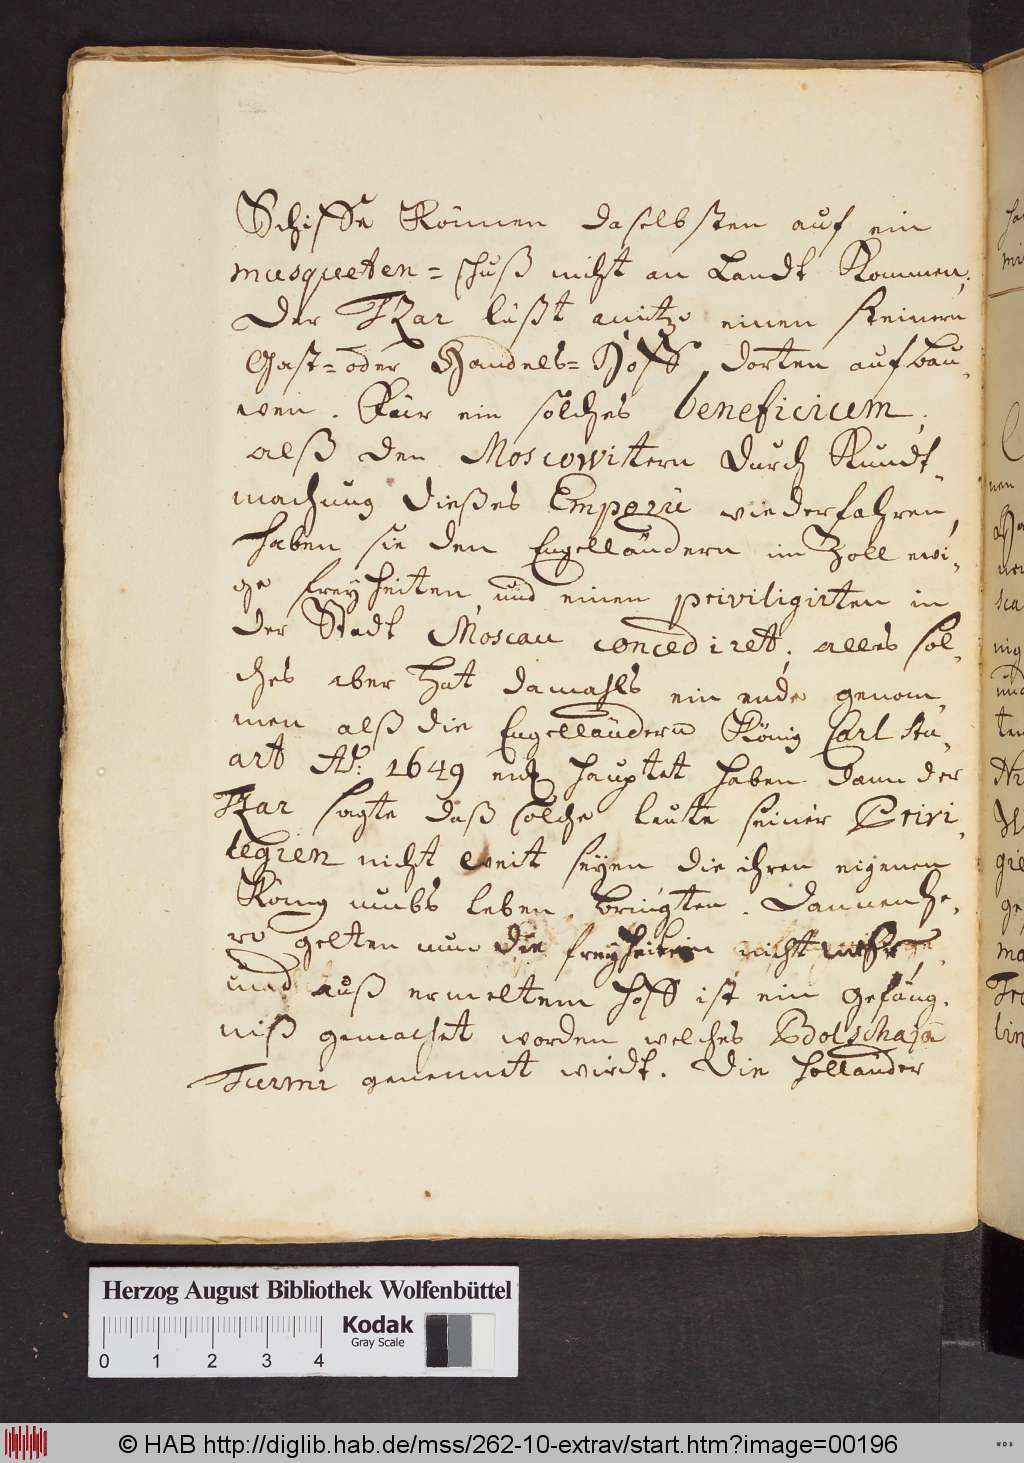 Schiffe Können daselbsten auf ein
musqueten=schuß nicht an Landt Kommen,
Der Tzar läßt anitzo einen steinern
Gast= oder Handels=Hoff dorten aufbau,
wen. Für ein solches beneficium,
alß den Moscowittern durch Kundt,
machung dießes Emporii wiederfahren,
haben sie den Engelländern im Zoll ewi,
ge freyheiten, und einen priviligirten in
der Stadt Moscau concediret, alles sol,
ches aber hat damahls ein ende genom,
men alß die Engelländern König Carl Stu,
art Aº: 1649 endhauptet haben. Dann der
Tzar sagte daß solche leute seiner Privi,
legien nicht weit seyen die ihren eigenen
König umbs leben bringten. Dannenhe,
ro gelten nun die freyheiten nicht mehr,
und auß ermeltem hoff ist ein gefäng,
niß gemachet worden welches Bolschaja
Turmi genennet wirdt. Die holländer
Herzog August Bibliothek Wolfenbüttel
Kodak
Gray Scale
0 1 2 3 4
© HAB http://diglib.hab.de/mss/262-10-extrav/start.htm?image=00196